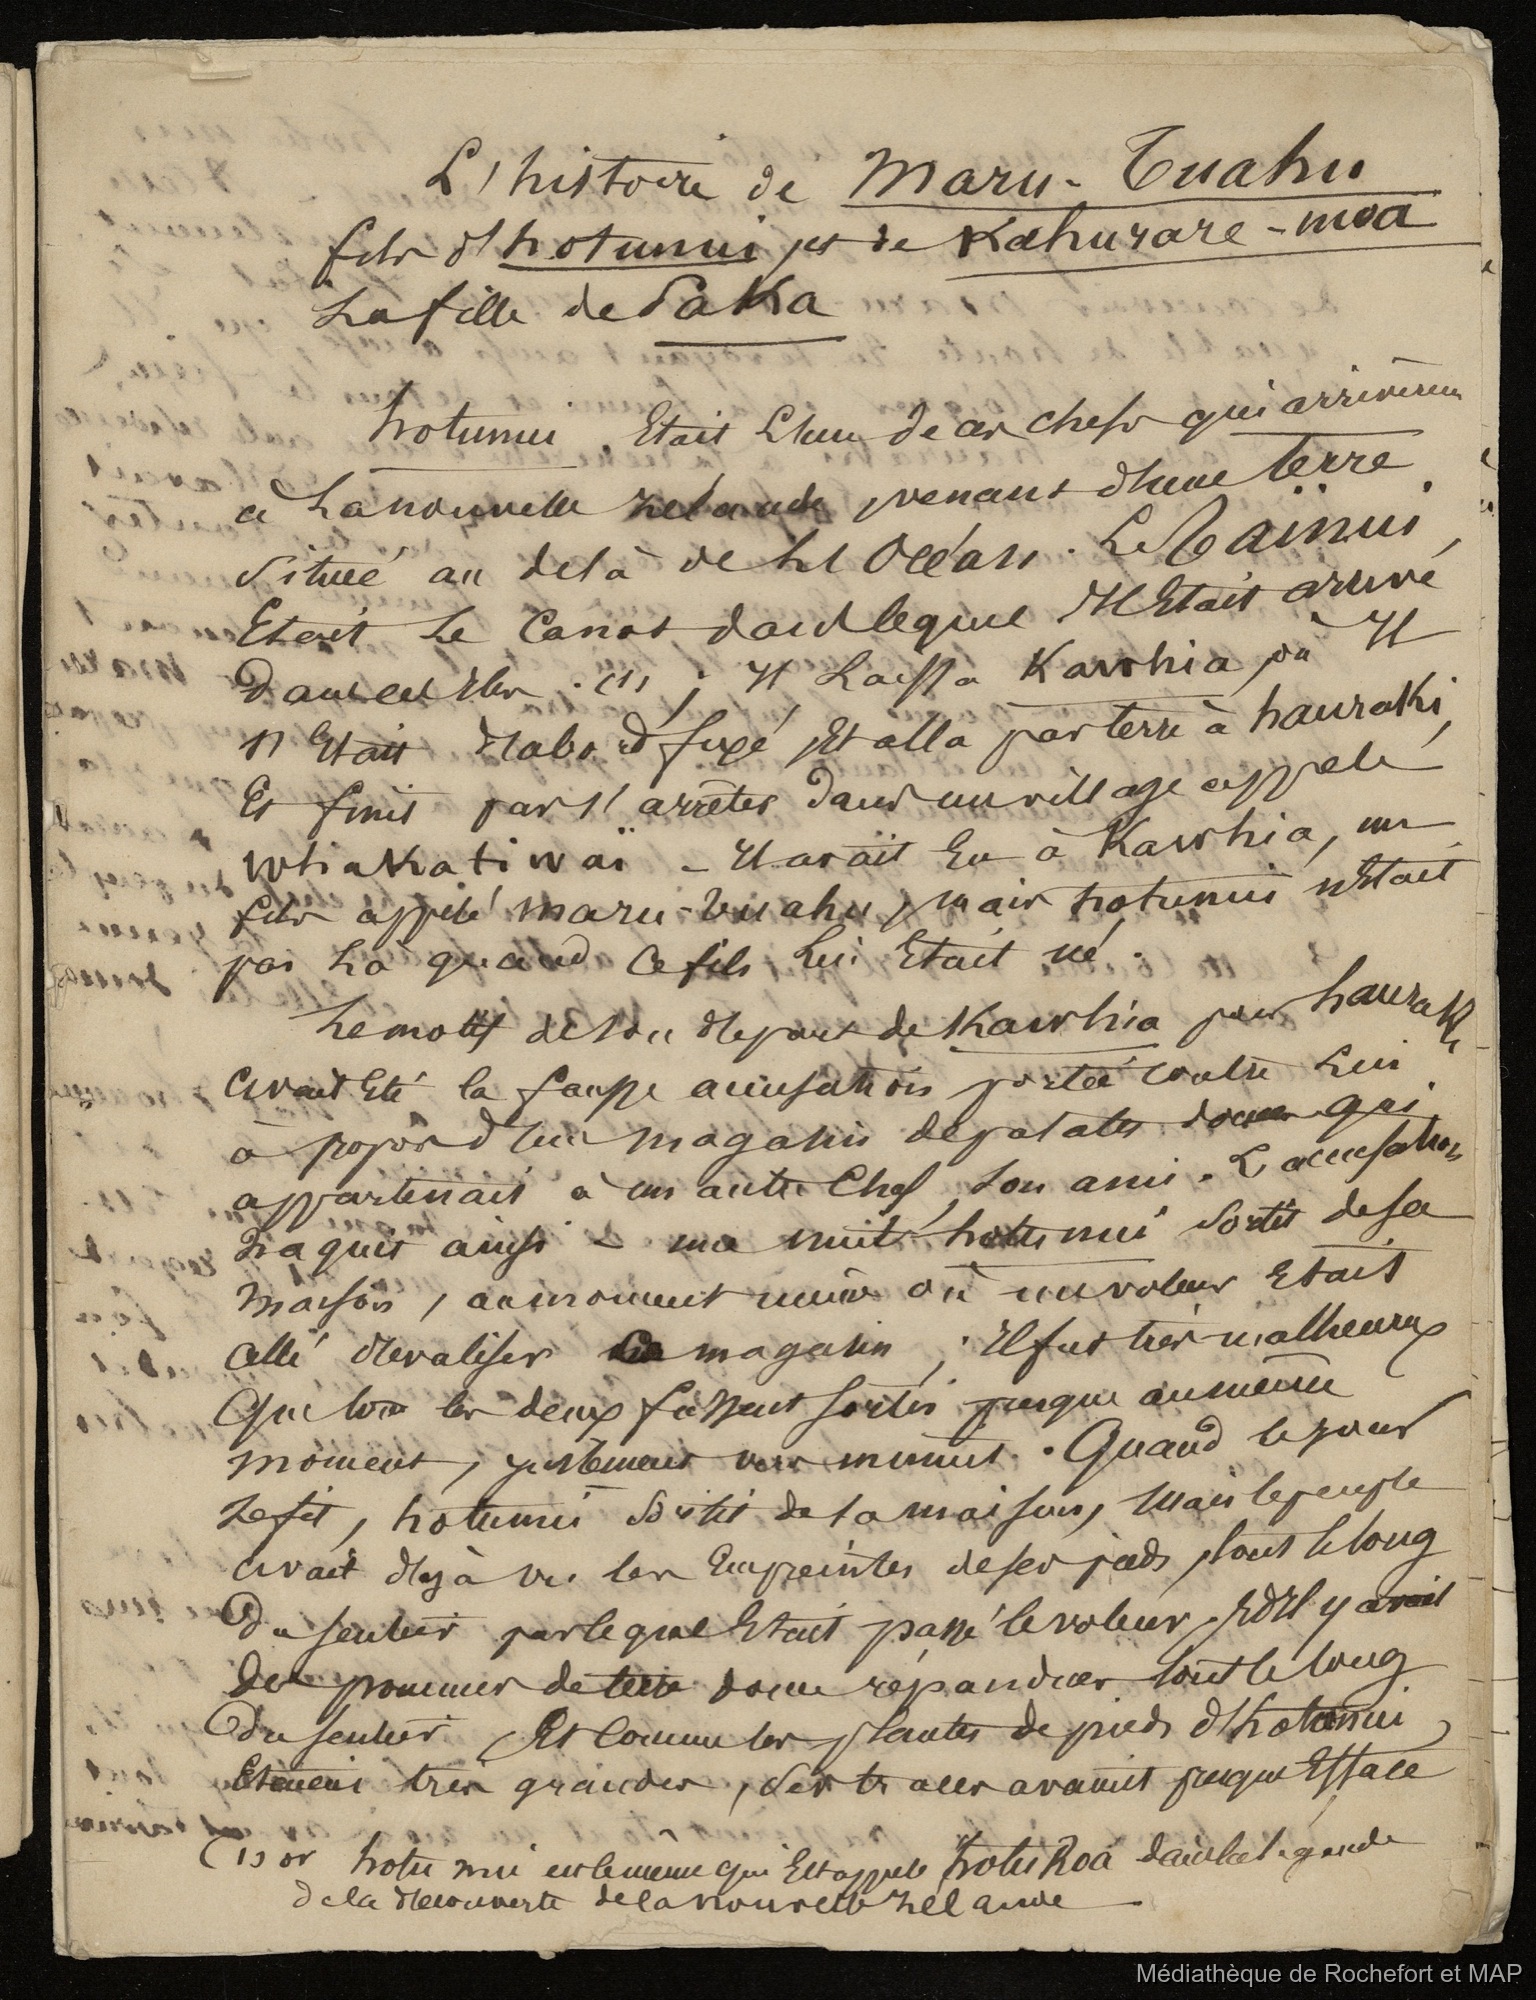 L'histoire de Maru-Tuahu
fils d'hotunui et de Kahurare-moa
La fille de Paka
hotunui Etait L'un de ces chefs qui arrivèrent
à La nouvelle zelande venant d'une terre
Située au delà de L'Océan. Le Taïnui,
Etait Le Canot dans lequel Il Etait arrivé
Dans ces Iles. (1) ; Il Laissa Kawhia où Il
s'Etait d'abord fixé Et alla par terre à hauraki,
Et finit par s'arrêter dans un village appelé
Whakatiwaï - Il avait Eu à Kawhia, un
fils appelé maru-tuahu, mais hotunui n'Etait
pas Là quand Ce fils Lui Etait né.
Le motif de son départ de Kawhia pour hauraki
avait Eté la fausse accusation portée contre Lui
à propos d'un magasin de patates qui
appartenait à un autre Chef, son ami. L'accusation
naquit ainsi - une nuit hotunui Sortit de sa
maison, au moment même où un voleur Etait
allé dévaliser magasin ; Il fut très malheureux
Que tous les deux fussent sortis presque au même
moment, justement vers minuit. Quand le jour
se fit, hotunui Sortit de la maison, Mais le peuple
avait déjà vu les Empreintes de ses pieds, tout le long
Du sentier par lequel Etait passé le voleur, Et Il y avait
Des pommes de terre douce répandues tout le long
Du sentier, Et Comme les plantes de pieds d'hotunui
Etaient très grandes, Ses traces avaient presque Effacé
(1) or hotu nui est le même qui Est appelé hotu Roa dans la légende
de la découverte de la nouvelle zelande
Médiathèque de Rochefort et MAP